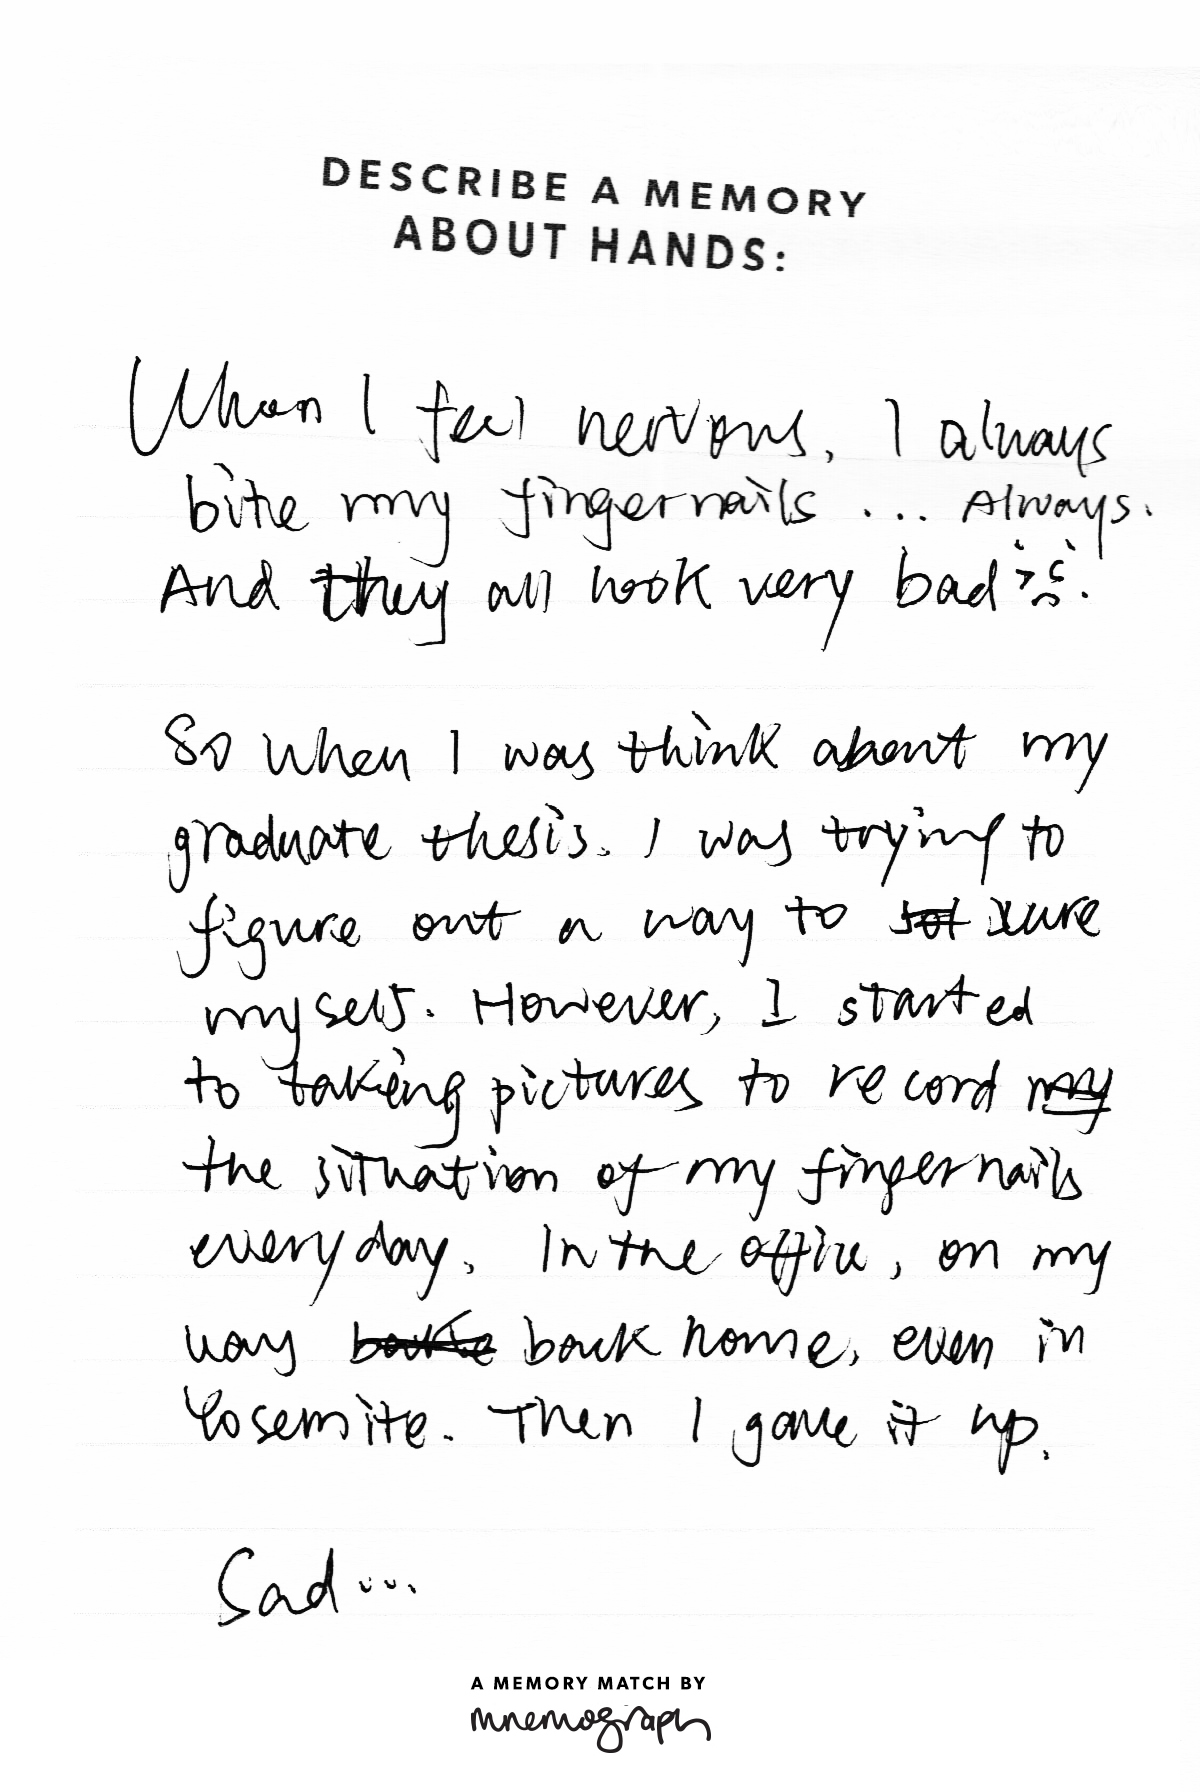 DESCRIBE A MEMORY
ABOUT HANDS:
When I feel nervous, I always
bite my fingernails ... Always.
And they all look very bad
So when I was think about my
graduate thesis. I was trying to
figure out a way to
myself. However, I started
to taking pictures to record my
the situation of my fingernails
every day. In the office, on my
way back home, even in
Yosemite. Then I gave it up.
Sad...
A MEMORY MATCH BY
mnemograph